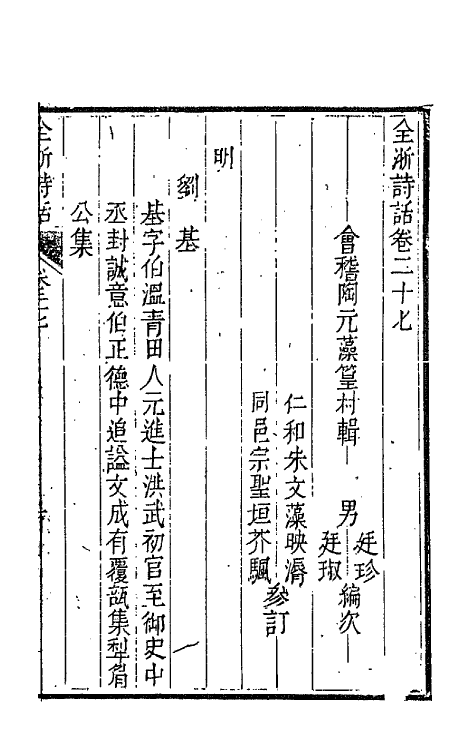 全浙詩話卷二十七
會稽陶元藻篁村輯　男廷珍
廷琡編次
仁和朱文藻映漘
同邑宗聖垣芥颿參訂
明
劉基
基字伯溫青田人元進士洪武初官至御史中
丞封誠意伯正德中追謚文成有覆瓿集犁眉
公集
全浙詩話
卷二七